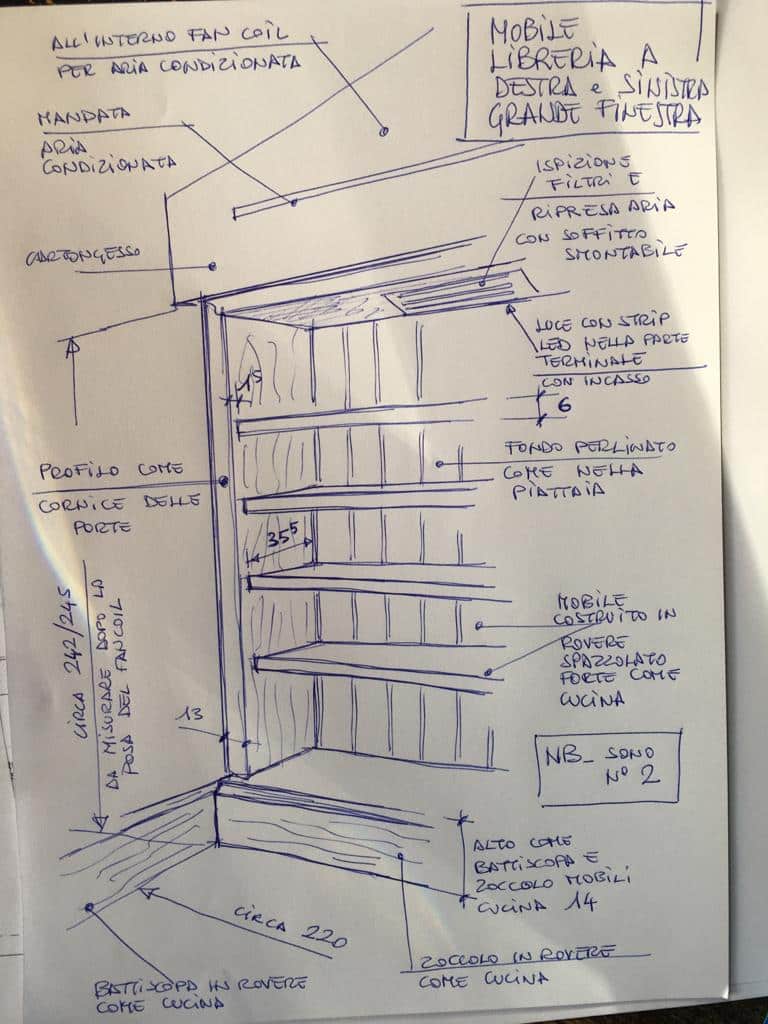 ALL'INTERNO FAN COIL
PER ARIA CONDIZIONATA
MOBILE
LIBRERIA A
DESTRA e SINISTRA
GRANDE FINESTRA
MANDATA
ARIA
CONDIZIONATA
ISPIZIONE
FILTRI E
RIPRESA ARIA
CON SOFFITTO
SMONTABILE
CARTONGESSO
LUCE CON STRIP
LED NELLA PARTE
TERMINALE
CON INCASSO
6
FONDO PERLINATO
COME NELLA
PIATTAIA
PROFILO COME
CORNICE DELLE
PORTE
35⁵
CIRCA 242/245
DA MISURARE DOPO LA
POSA DEL FANCOIL
MOBILE
COSTRUITO IN
ROVERE
SPAZZOLATO
FORTE COME
CUCINA
13
NB_ SONO
N° 2
ALTO COME
BATTISCOPA E
ZOCCOLO MOBILI
CUCINA 14
CIRCA 220
ZOCCOLO IN ROVERE
COME CUCINA
BATTISCOPA IN ROVERE
COME CUCINA